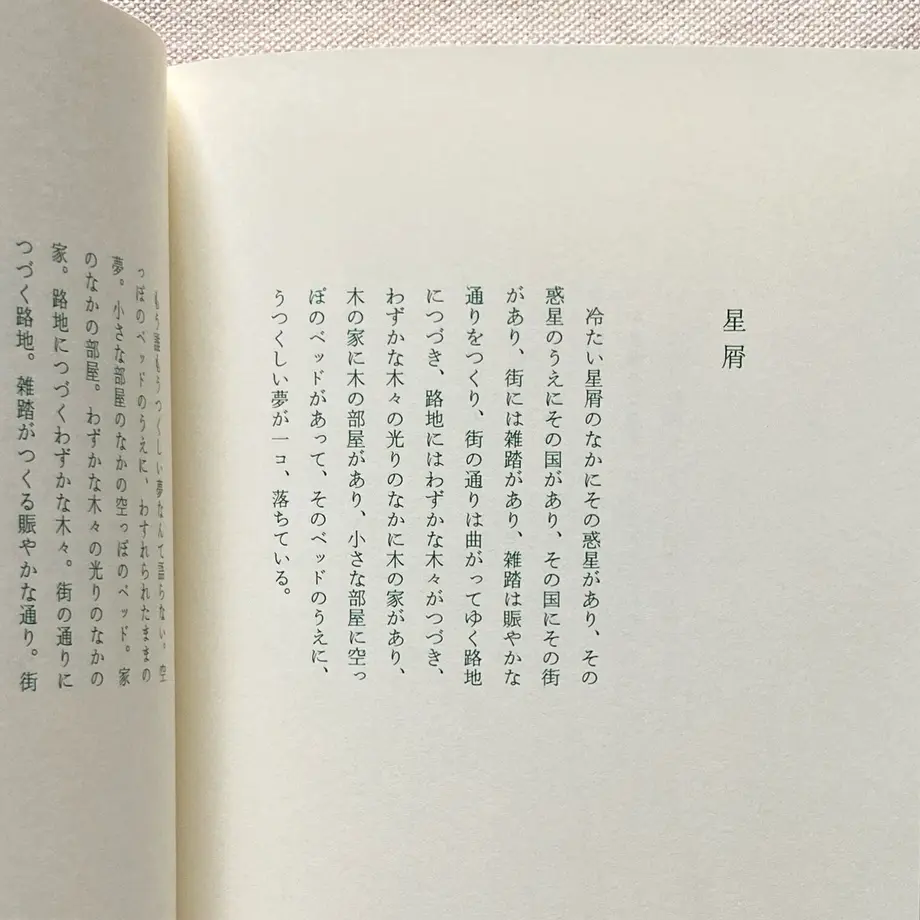 星屑
冷たい星屑のなかにその惑星があり、その
惑星のうえにその国があり、その国にその街
があり、街には雑踏があり、雑踏は賑やかな
通りをつくり、街の通りは曲がってゆく路地
につづき、路地にはわずかな木々がつづき、
わずかな木々の光りのなかに木の家があり、
木の家に木の部屋があり、小さな部屋に空っ
ぽのベッドがあって、そのベッドのうえに、
うつくしい夢が一コ、落ちている。
もう誰もうつくしい夢なんて語らない。空
っぽのベッドのうえに、わすれられたままの
夢。小さな部屋のなかの空っぽのベッド。家
のなかの部屋。わずかな木々の光りのなかの
家。路地につづくわずかな木々。街の通りに
つづく路地。雑踏がつくる賑やかな通り。街